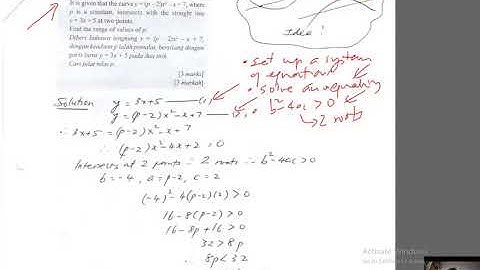 It is given that the curve y = (p – 2)x² – x + 7, where
p is a constant, intersects with the straight line
y = 3x + 5 at two points.
Find the range of values of p.
Diberi bahawa lengkung y = (p – 2)x² – x + 7,
dengan keadaan p ialah pemalar, bersilang dengan
garis lurus y = 3x + 5 pada dua titik.
Cari julat nilai p.
[3 marks]
[3 markah]
Idea!
• set up a system
of equations
• solve an inequality
• b²-4ac > 0
↳ 2 roots
Solution y = 3x+5 —(1)
y = (p-2)x²-x+7
∴ 3x+5 = (p-2)x²-x+7
∴ (p-2)x²-4x+2=0
Intersects at 2 points ∴ 2 roots ∴ b²-4ac>0
b=-4, a=p-2, c=2
(-4)²-4(p-2)(2)>0
16-8(p-2)>0
16-8p+16>0
32>8p
∴ 8p<32
Activate Windows